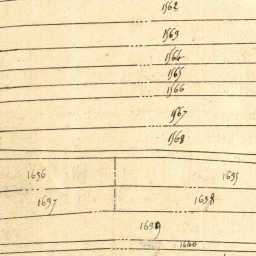 1562
1563
1564
1565
1566
1567
1568
1636 1635
1637 1638
1639
1640